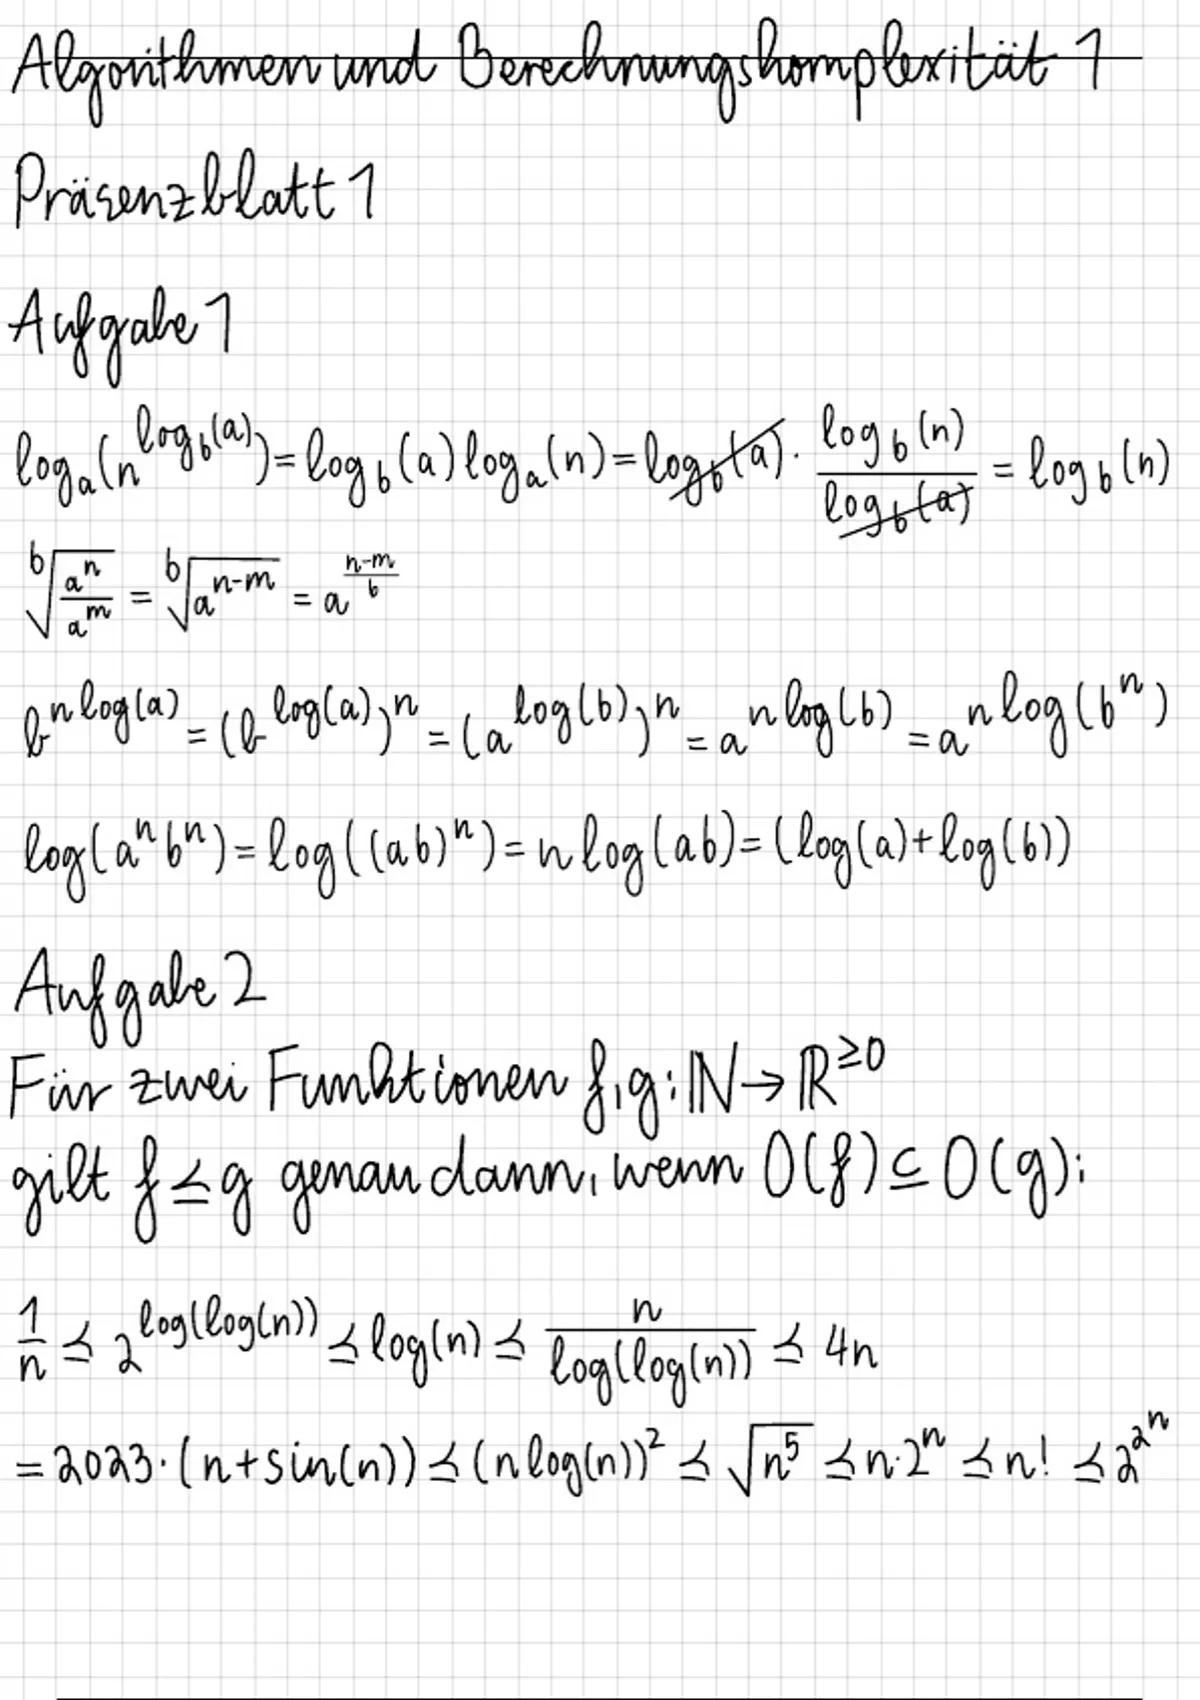 Algorithmen und Berechnungskomplexität 1
Präsenzblatt 1
Aufgabe 1
log_a(n^{log_b(a)}) = log_b(a) log_a(n) = log_b(a) · \frac{log_b(n)}{log_b(a)} = log_b(n)
\sqrt[b]{\frac{a^n}{a^m}} = \sqrt[b]{a^{n-m}} = a^{\frac{n-m}{b}}
b^{n log(a)} = (b^{log(a)})^n = (a^{log(b)})^n = a^{n log(b)} = a^{n log(b^n)}
log(a^n b^n) = log((ab)^n) = n log(ab) = (log(a) + log(b))
Aufgabe 2
Für zwei Funktionen f, g: ℕ → ℝ^{≥0}
gilt f ⪯ g genau dann, wenn O(f) ⊆ O(g):
\frac{1}{n} ⪯ 2^{log(log(n))} ⪯ log(n) ⪯ \frac{n}{log(log(n))} ⪯ 4n
= 2023 · (n + sin(n)) ⪯ (n log(n))^2 ⪯ \sqrt{n^5} ⪯ n·2^n ⪯ n! ⪯ 2^{2^n}